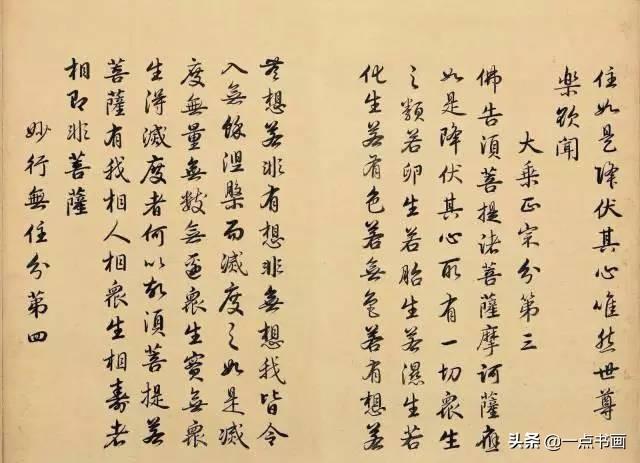 住如是降伏其心唯然世尊願
樂欲聞
大乘正宗分第三
佛告須菩提諸菩薩摩訶薩應
如是降伏其心所有一切衆生
之類若卵生若胎生若濕生若
化生若有色若無色若有想若
無想若非有想非無想我皆令
入無餘涅槃而滅度之如是滅
度無量無數無邊衆生實無衆
生得滅度者何以故須菩提若
菩薩有我相人相衆生相壽者
相即非菩薩
妙行無住分第四
头条@一点书画